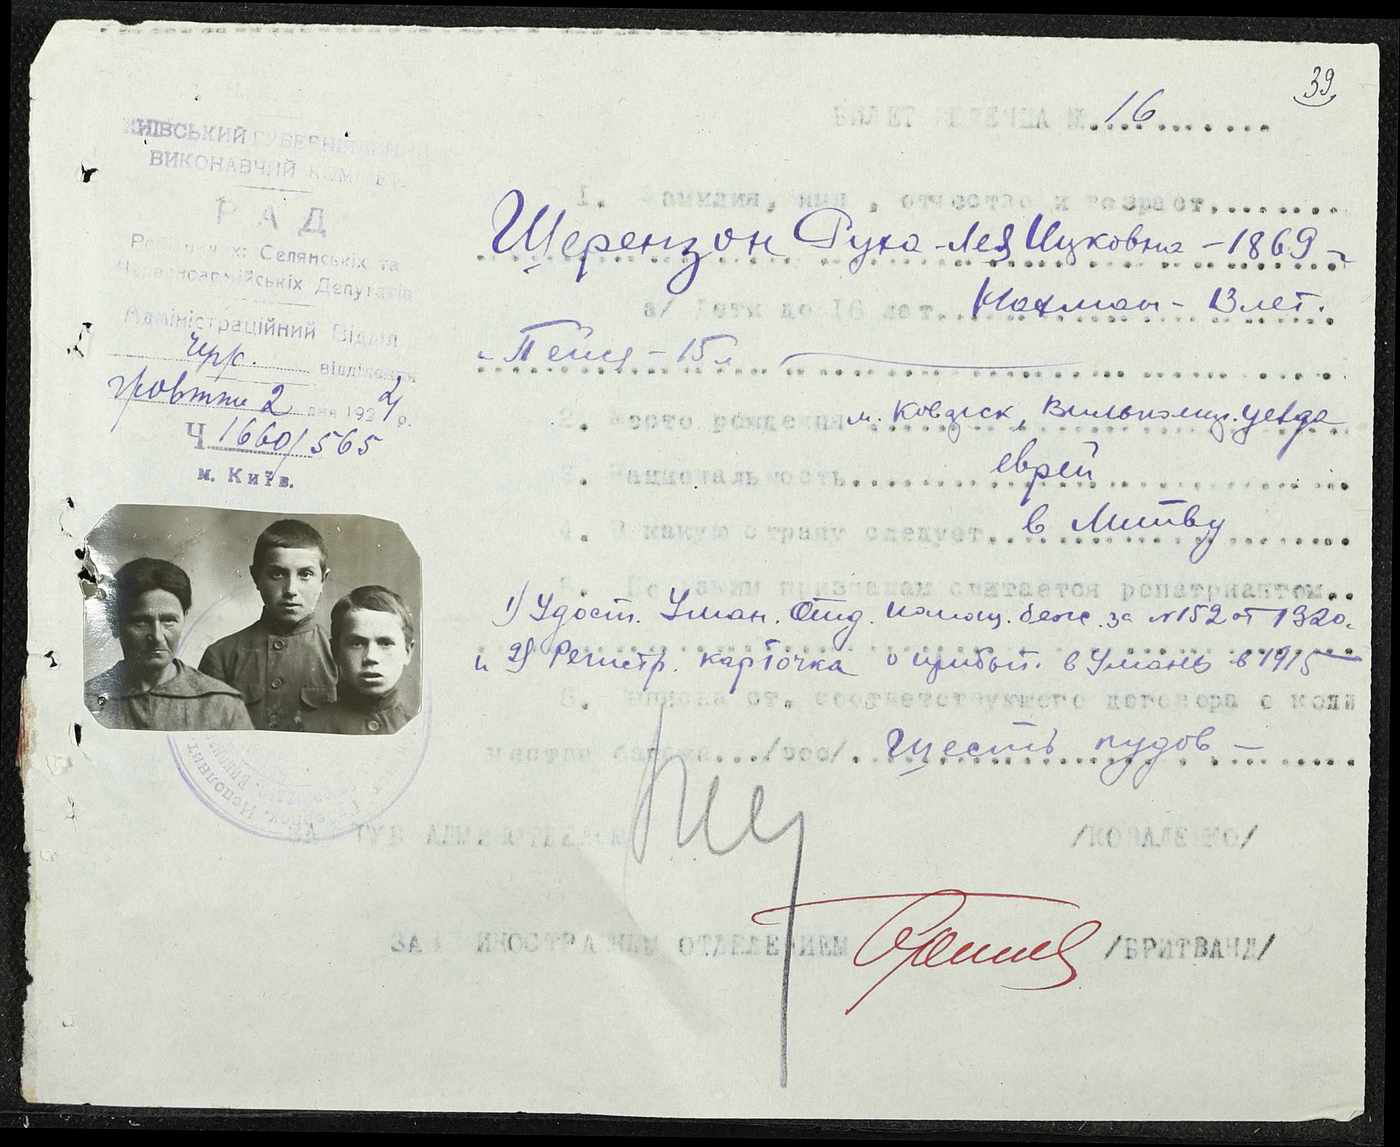 39
БИЛЕТ БЕЖЕНЦА № 16
КИЇВСЬКИЙ ГУБЕРНІЯЛЬНИЙ
ВИКОНАВЧИЙ КОМІТЕТ.
РАД
Робітничіх Селянськіх та
Червоноармійськіх Депутатів
Адміністраційний Відділ
відділення
Жовтня 2 дня 1924 р.
Ч 1660/565
м. Київ.
1. Фамилия, имя, отчество и возраст
Шерензон Рухa-Лея Ицковна - 1869 -
а/ Дети до 16 лет Нахман - 13 лет.
и Пейся - 15 л
2. Место рождения м. Ковдгск, Вилькомир. уезда
3. Национальность еврей
4. В какую страну следует в Литву
5. По каким признакам считается репатриантом
1) Удост. Уман. Отд. помощ. беж. за №152 от 1920.
и 2) Регистр. карточка о прибыт. в Умань в 1915
6. Выписка от. соответствующего договора о коли
честве багажа.../вес/. Шесть пудов -
ЗАВ ГУБ АДМИНОТДЕЛОМ /КОВАЛЕНКО/
ЗАВ ИНОСТРАННЫМ ОТДЕЛЕНИЕМ /БРИТВАНД/